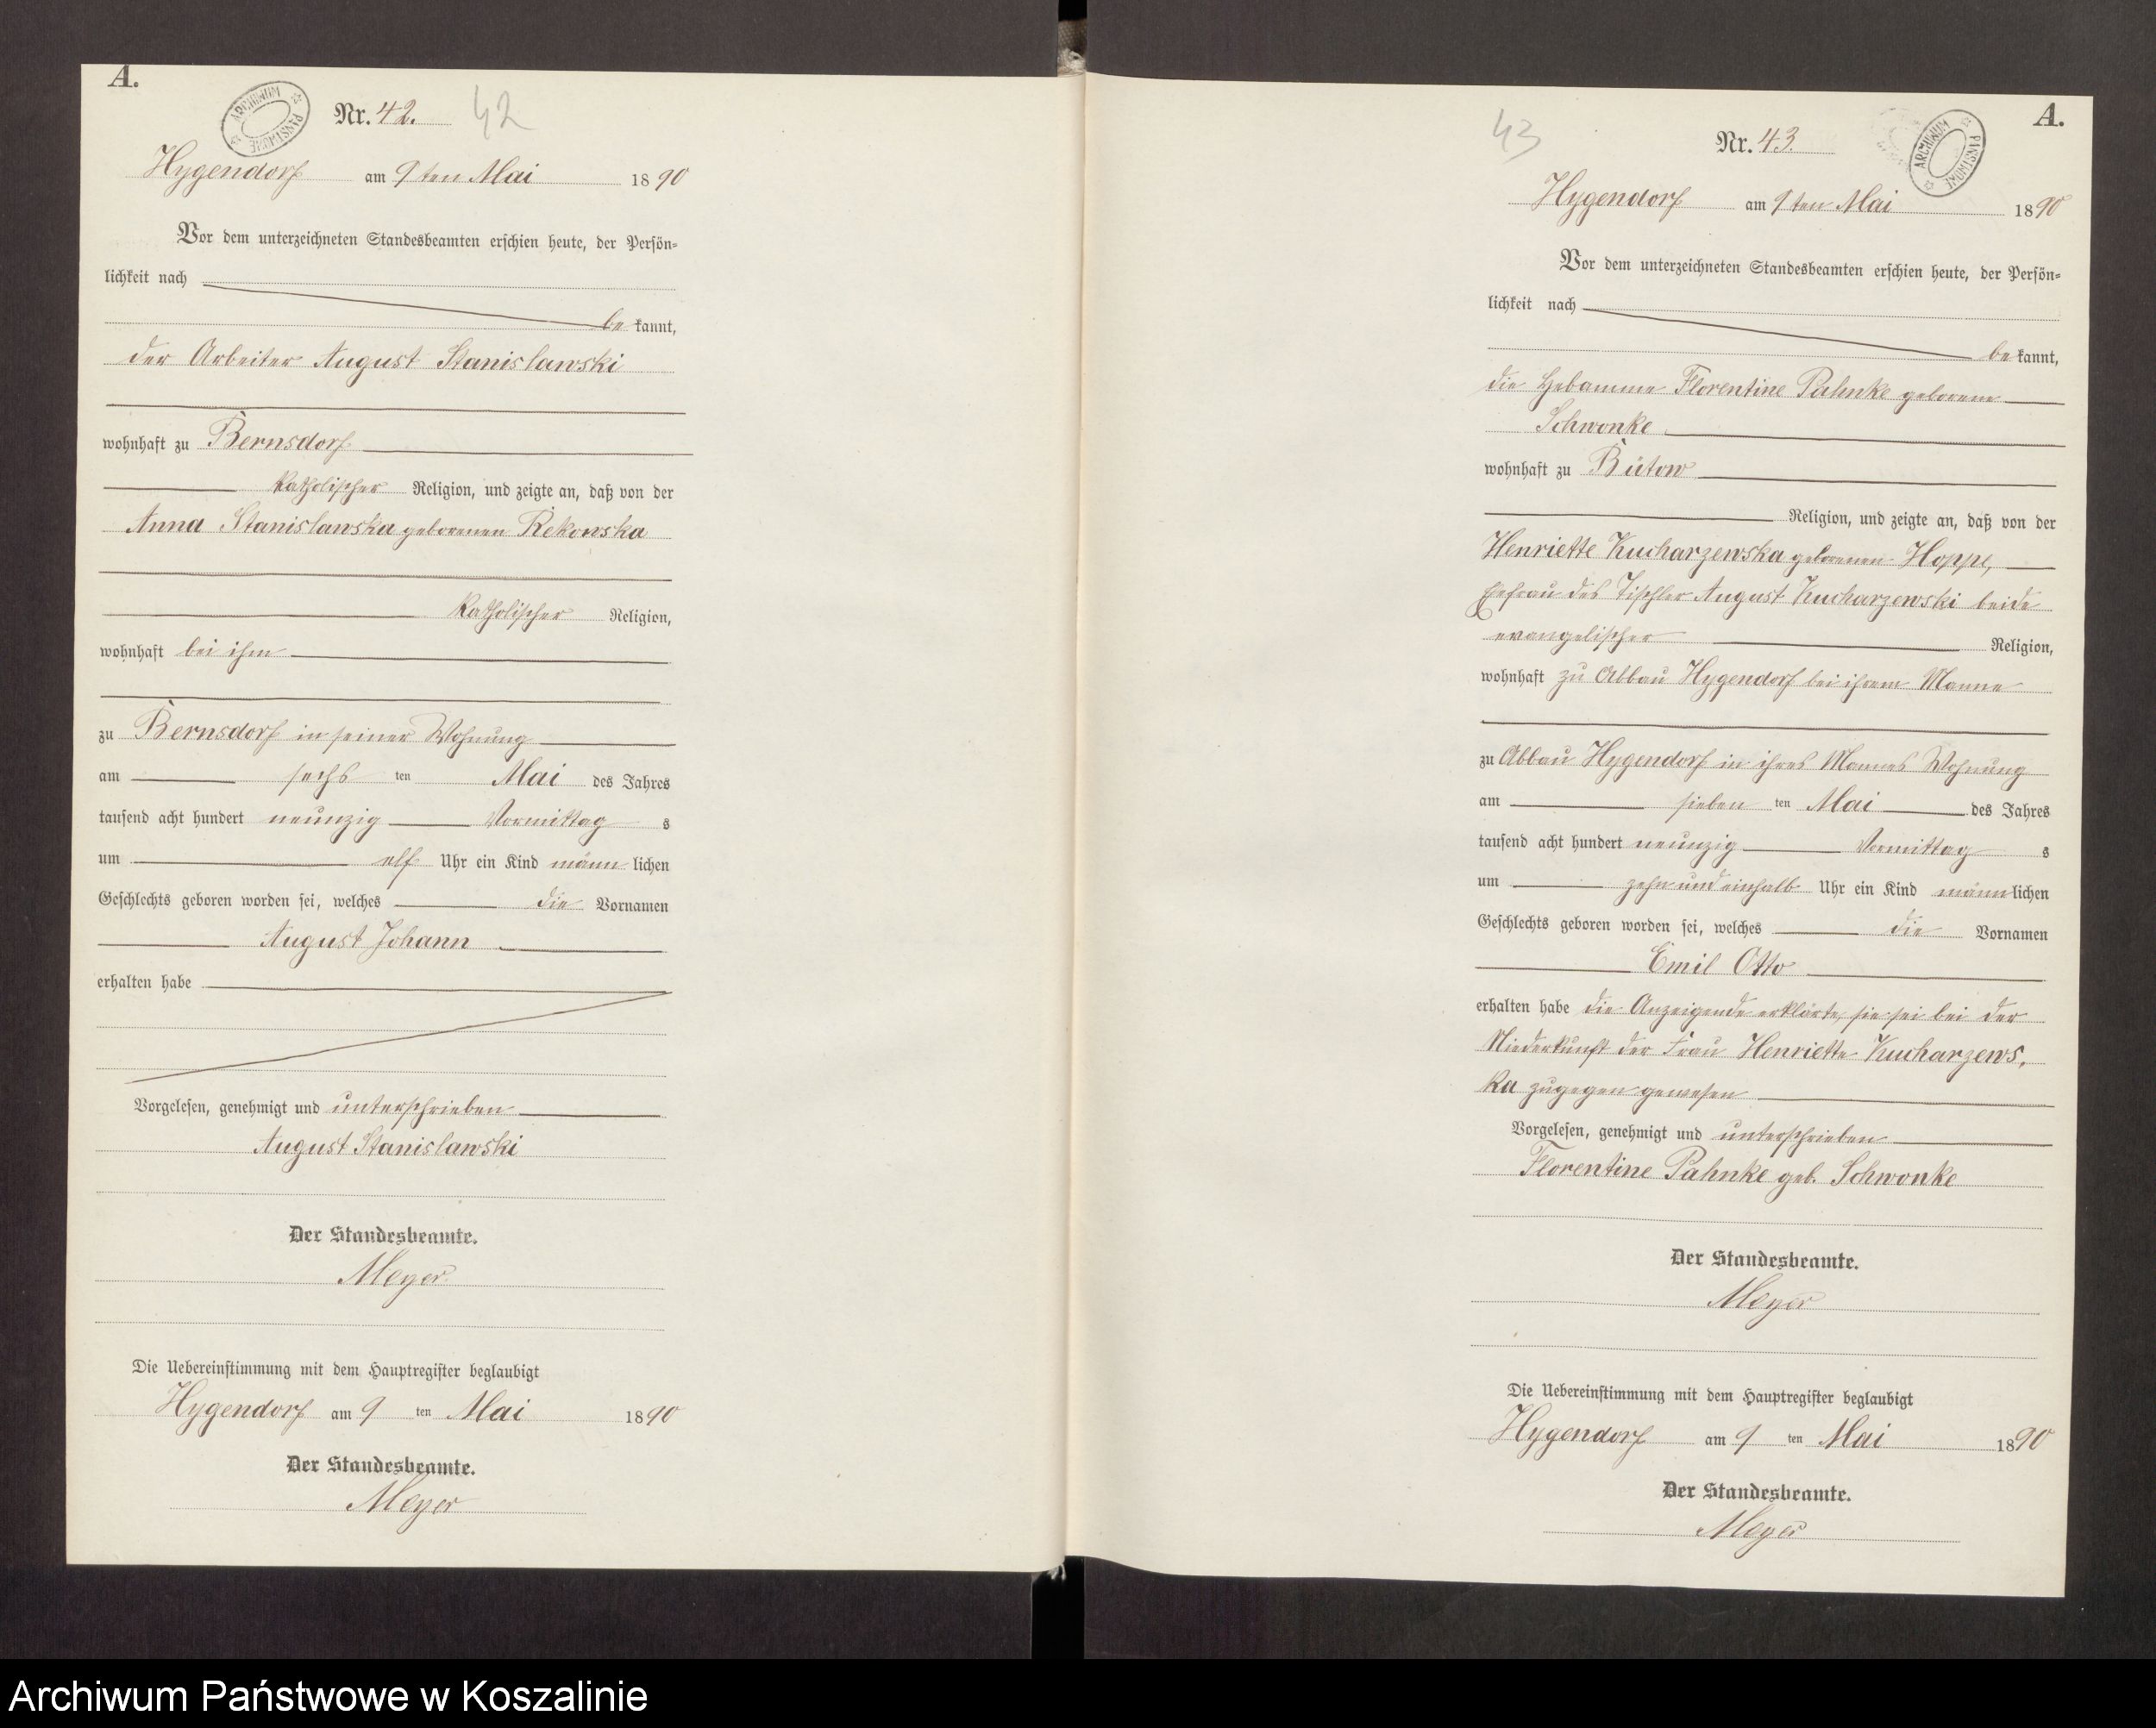 A.
ARCHIWUM PAŃSTWOWE
Nr. 42.
42
Hygendorf am 9ten Mai 1890
Vor dem unterzeichneten Standesbeamten erschien heute, der Persön-
lichkeit nach
be kannt,
der Arbeiter August Stanislawski
wohnhaft zu Bernsdorf
katholischer Religion, und zeigte an, daß von der
Anna Stanislawska geborenen Rekowska
katholischer Religion,
wohnhaft bei ihm
zu Bernsdorf in seiner Wohnung
am sechs ten Mai des Jahres
tausend acht hundert neunzig Vormittag s
um elf Uhr ein Kind männ lichen
Geschlechts geboren worden sei, welches die Vornamen
August Johann
erhalten habe
Vorgelesen, genehmigt und unterschrieben
August Stanislawski
Der Standesbeamte.
Meyer
Die Uebereinstimmung mit dem Hauptregister beglaubigt
Hygendorf am 9 ten Mai 1890
Der Standesbeamte.
Meyer
A.
ARCHIWUM PAŃSTWOWE
43
Nr. 43.
Hygendorf am 9ten Mai 1890
Vor dem unterzeichneten Standesbeamten erschien heute, der Persön-
lichkeit nach
be kannt,
die Hebamme Florentine Pahnke geborene
Schwonke
wohnhaft zu Bütow
Religion, und zeigte an, daß von der
Henriette Kucharzewska geborenen Hoppe,
Ehefrau des Tischler August Kucharzewski beide
evangelischer Religion,
wohnhaft zu Abbau Hygendorf bei ihrem Manne
zu Abbau Hygendorf in ihres Mannes Wohnung
am sieben ten Mai des Jahres
tausend acht hundert neunzig Vormittag s
um zehn und einhalb Uhr ein Kind männ lichen
Geschlechts geboren worden sei, welches die Vornamen
Emil Otto
erhalten habe die Anzeigende erklärte, sie sei bei der
Niederkunft der Frau Henriette Kucharzews,
ka zugegen gewesen
Vorgelesen, genehmigt und unterschrieben
Florentine Pahnke geb. Schwonke
Der Standesbeamte.
Meyer
Die Uebereinstimmung mit dem Hauptregister beglaubigt
Hygendorf am 9 ten Mai 1890
Der Standesbeamte.
Meyer
Archiwum Państwowe w Koszalinie